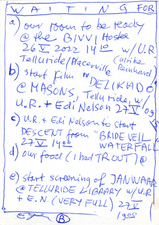 WAITING FOR
a) our room to be ready
@ the BIVVI Hostel
26 V 2022 14 w/U.R.
Telluride/Placerville (Ulrike Reinhard)
b) start film "DELIKADO
@ MASONS, Telluride, w/
U.R. + Edi Nelson 27 V
c) U.R. + Edi Nelson to start
DESCENT from "BRIDEVEIL
27 V 14 WATERFALL
d) our food (I had TROUT) @
e) start screening of JANWAAR
@ TELLURIDE LIBRARY w/U.R
+ E.N (VERY FULL) 27 V
A